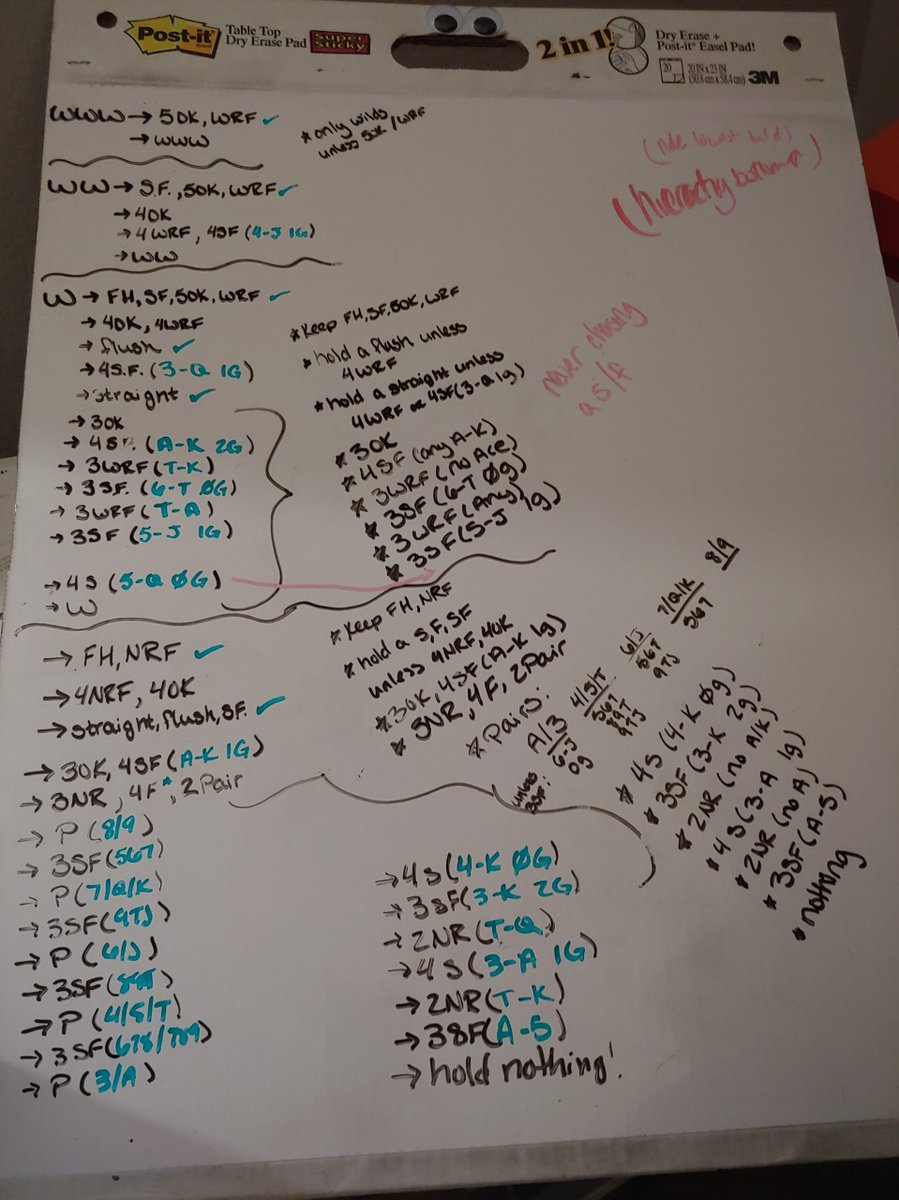 Post-it
Table Top
Dry Erase Pad
Super
Sticky
2 in 1!
Dry Erase +
Post-it® Easel Pad!
20
20 IN x 23 IN
(50.8 cm x 58.4 cm)
3M
WWW → 5OK, WRF ✓
→ WWW
* only wilds
unless 5OK / WRF
WW → S.F., 5OK, WRF ✓
→ 4OK
→ 4WRF, 4SF (4-J 1G)
→ WW
W → FH, SF, 5OK, WRF ✓
→ 4OK, 4WRF
→ flush ✓
→ 4S.F. (3-Q 1G)
→ straight ✓
→ 3OK
→ 4SF. (A-K 2G)
→ 3WRF (T-K)
→ 3SF. (6-T ØG)
→ 3WRF (T-A)
→ 3SF (5-J 1G)
→ 4S (5-Q ØG)
→ W
* Keep FH, SF, 5OK, WRF
* hold a flush unless
4WRF
* hold a straight unless
4WRF or 4SF (3-Q 1g)
* 3OK
* 4SF (any A-K)
* 3WRF (no Ace)
* 3SF (6-T Øg)
* 3WRF (Any)
* 3SF (5-J 1g)
(hierachy bottom)
never chasing
a S/F
→ FH, NRF ✓
→ 4NRF, 4OK
→ straight, flush, SF. ✓
→ 3OK, 4SF (A-K 1G)
→ 3NR, 4F*, 2Pair
→ P (8/9)
→ 3SF (567)
→ P (7/Q/K)
→ 3SF (9TJ)
→ P (6/J)
→ 3SF (89T)
→ P (4/5/T)
→ 3SF (678/789)
→ P (3/A)
→ 4S (4-K ØG)
→ 3SF (3-K 2G)
→ 2NR (T-Q)
→ 4S (3-A 1G)
→ 2NR (T-K)
→ 3SF (A-5)
→ hold nothing!
* Keep FH, NRF
* hold a S, F, SF
unless 4NRF, 4OK
* 3OK, 4SF (A-K 1g)
* 3NR, 4F, 2Pair
* Pairs:
unless
3SF:
A/3
6-J
0g
4/5/T
567
89T
9TJ
6/J
567
9TJ
7/Q/K
567
8/9
* 4S (4-K Øg)
* 3SF (3-K 2g)
* 2NR (no A/K)
* 4S (3-A 1g)
* 2NR (no A)
* 3SF (A-5)
* nothing